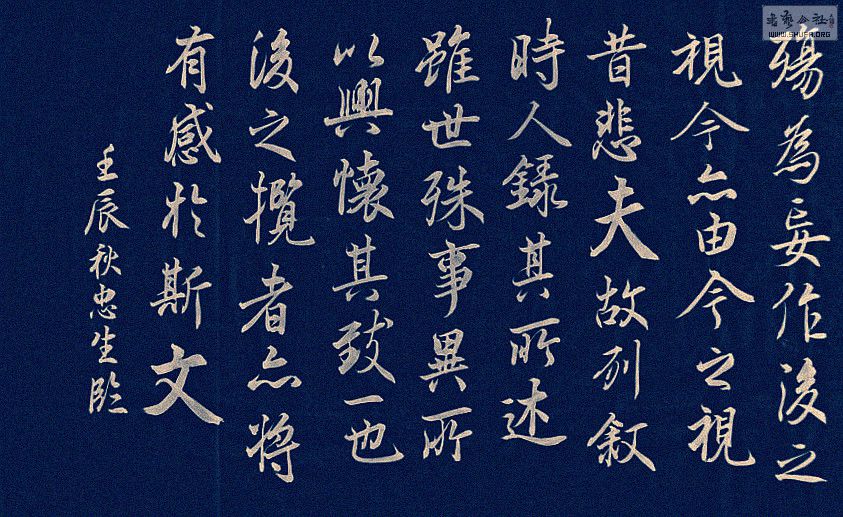 殤為妄作後之
視今亦由今之視
昔悲夫故列叙
時人録其所述
雖世殊事異所
以興懷其致一也
後之攬者亦將
有感於斯文
壬辰秋忠生臨
書藝公社
WWW.SHUFA.ORG